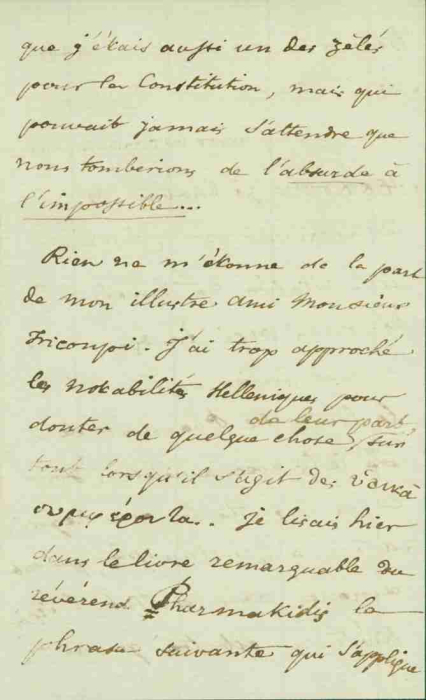 que j'étais aussi un des zêlés
pour la Constitution, mais qui
pouvait jamais s'attendre que
nous tomberions de l'absurde à
l'impossible...
Rien ne m'étonne de la part
de mon illustre ami Monsieur
Tricoupi. J'ai trop approché
les notabilités Helleniques pour
de leur part,
douter de quelque chose, sur
tout lorsqu'il s'agit des
συμφέροντα.. Je lisais hier
dans le livre remarquable du
révérend Pharmakidis la
phrase suivante qui s'applique